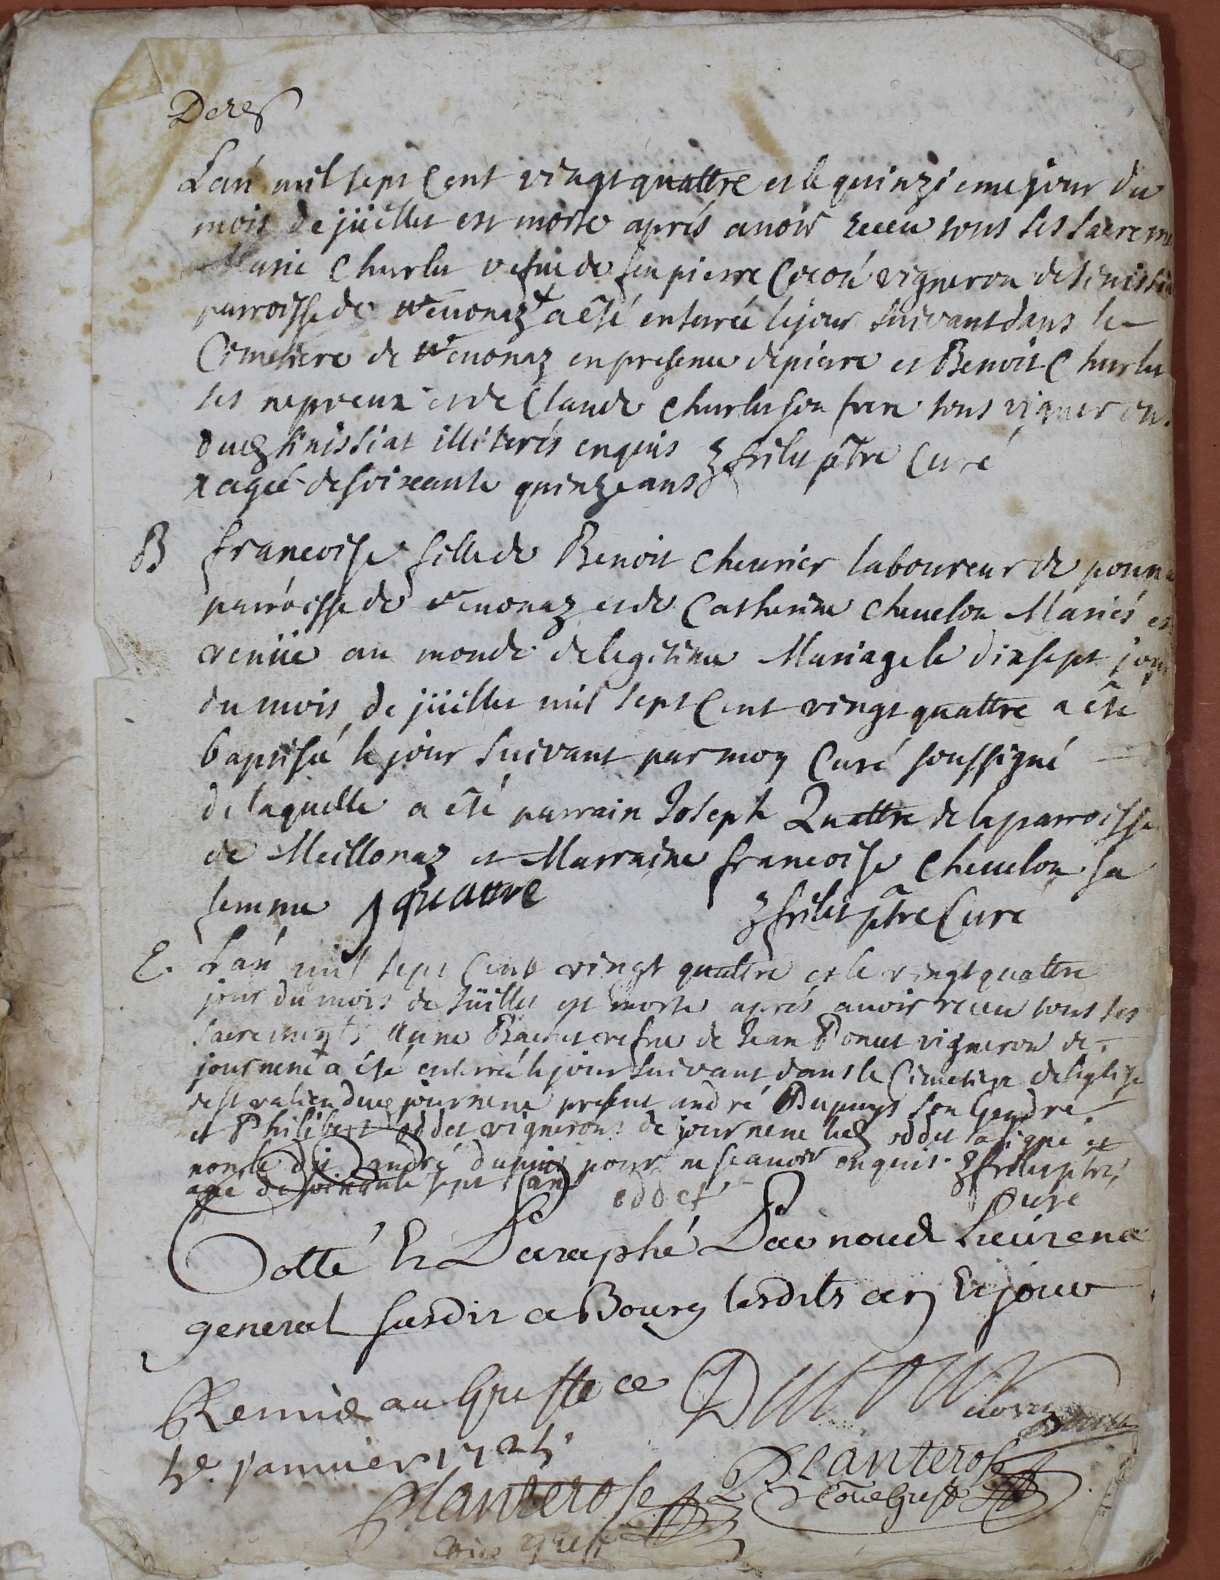 L'an mil sept Cent vingt quattre et le quinzieme jour du
mois de jüillet est morte aprés auoir receu tous ses sacrem
Marie Churlet vefue de feu pierre vigneron de
parroisse de Treuonaz a été enterrée le jour suivant dans le
Cimetiere de Treuonaz en presence de pierre et Benoit Churlet
ses nepveux et de Claude Churlet son frere tous vigneron
dud sinissiat illiterés enquis frilet ptre Curé
x agée de soixante quinze ans
B françoise fille de Benoit Cheurier laboureur de
parroisse de Treuonaz et de Catherine Cheuelon Mariés
venüe au monde de legitime Mariage le dixsept jour
du mois de jüillet mil sept Cent vingt quattre a été
baptisée le jour suivant par moy Curé soussigné
de laquelle a été parrain Joseph Quattre de la parroisse
de Meillonaz et Marraine francoise Cheuelon sa
femme J quatre frilet ptre Curé
E. L'an mil sept Cent vingt quattre et le vingt quattre
jour du mois de Jüillet est morte aprés auoir receu tous ses
sacrements Anne vefue de Jean Donet vigneron de
journent a été enterrée le jour suivant dans le Cimetiere de l'eglise
dud journent present andré Dupuys son Gendre
et Philibert oddet vignerons de journent led oddet a signé et
non led andré dupuis pour ne scauoir enquis. frilet ptre
agé de soixante sept ans oddet Curé
Cotté Et Paraphé Par nous Lieutena
general susdit a Bourg lesdits an Et jour
Remis au Greffe ce
Janvier 172
Planterose Planterose